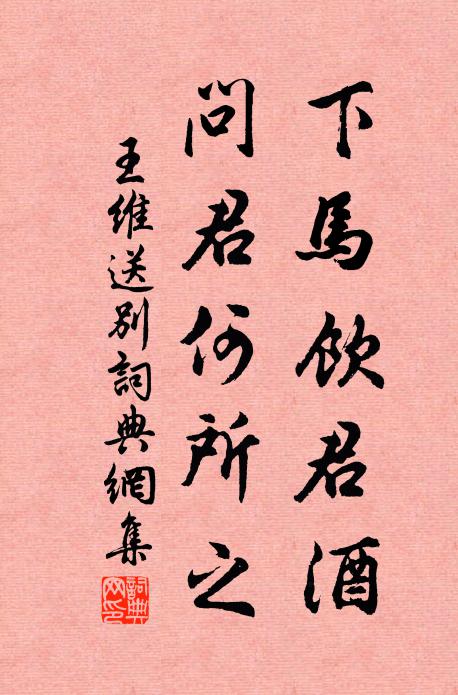 下馬飲君酒
問君何所之
王維送別詞典網集
詞典
网印